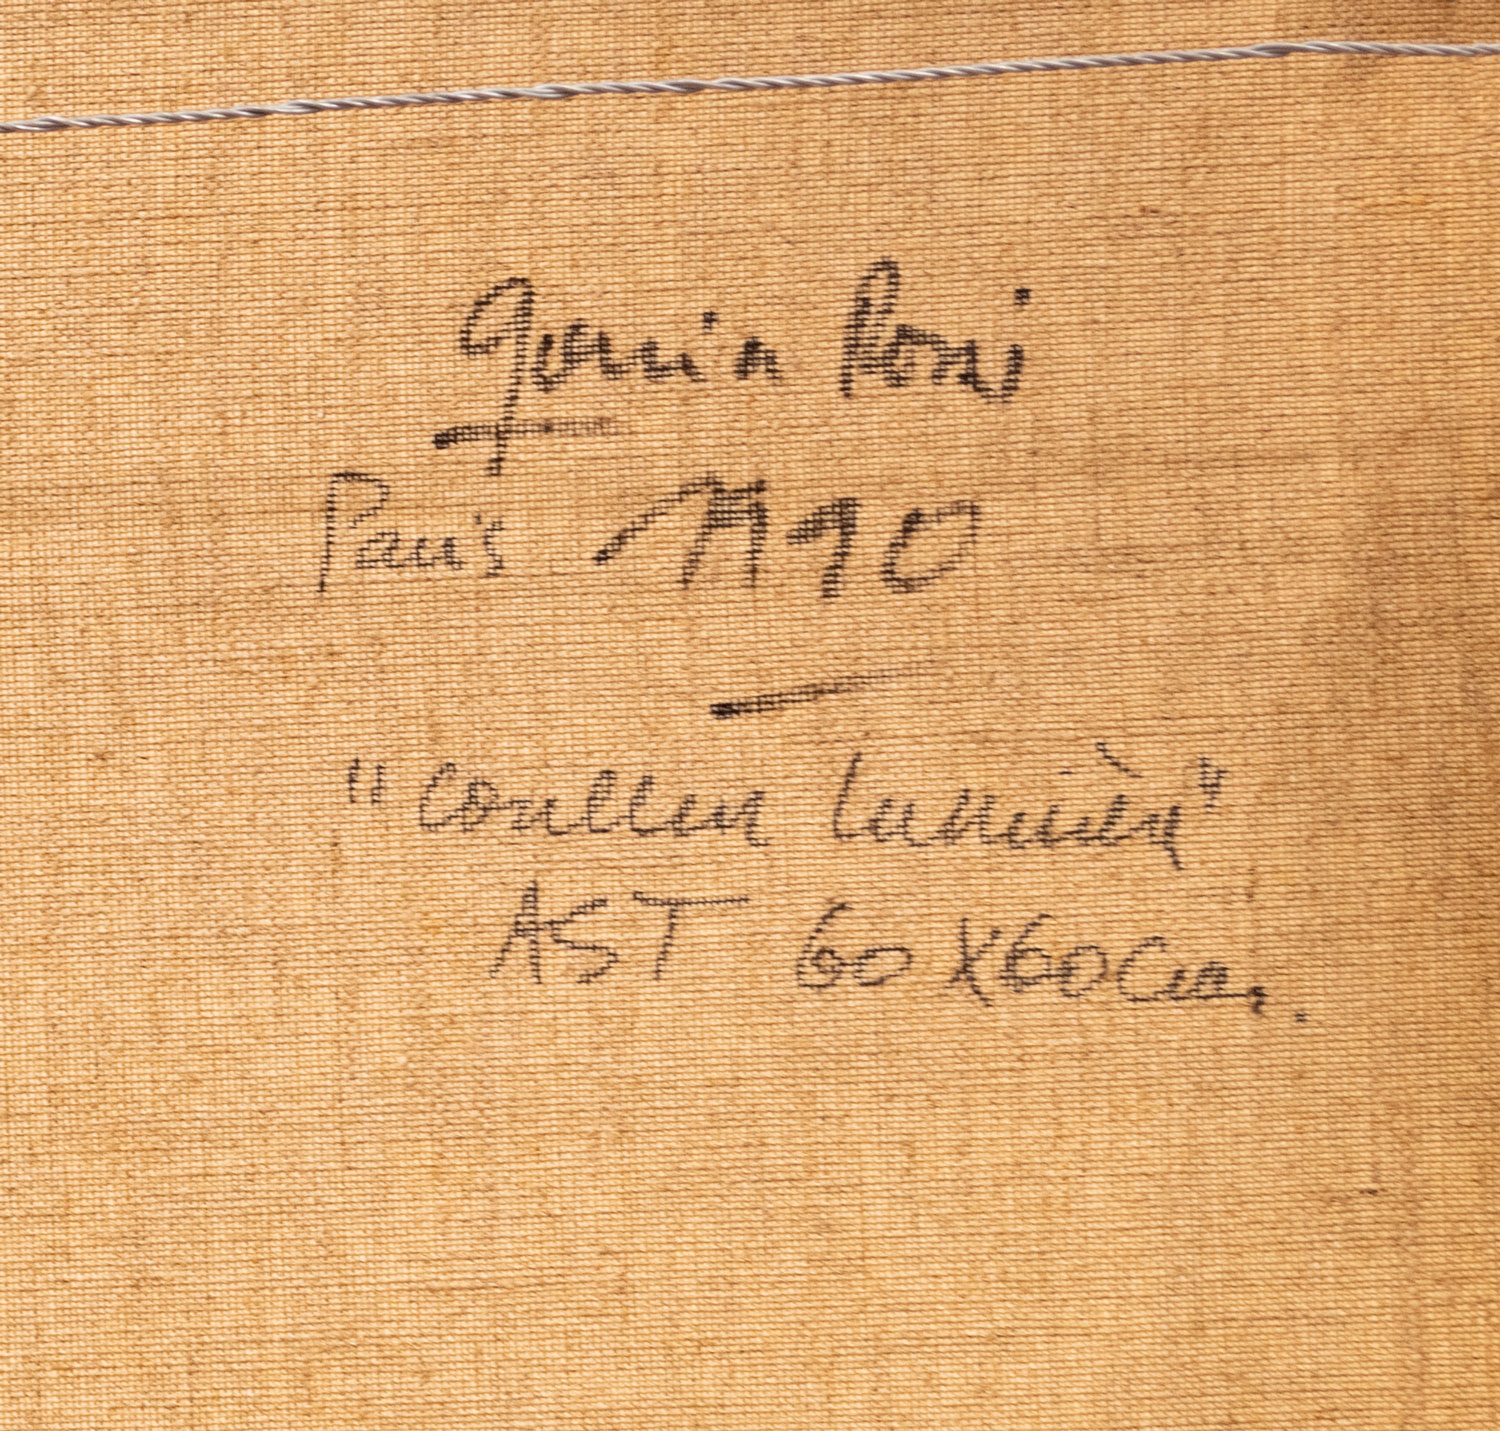 Garcia Rossi
Paris 1990
"couleur lumière"
AST 60 X 60 cm.